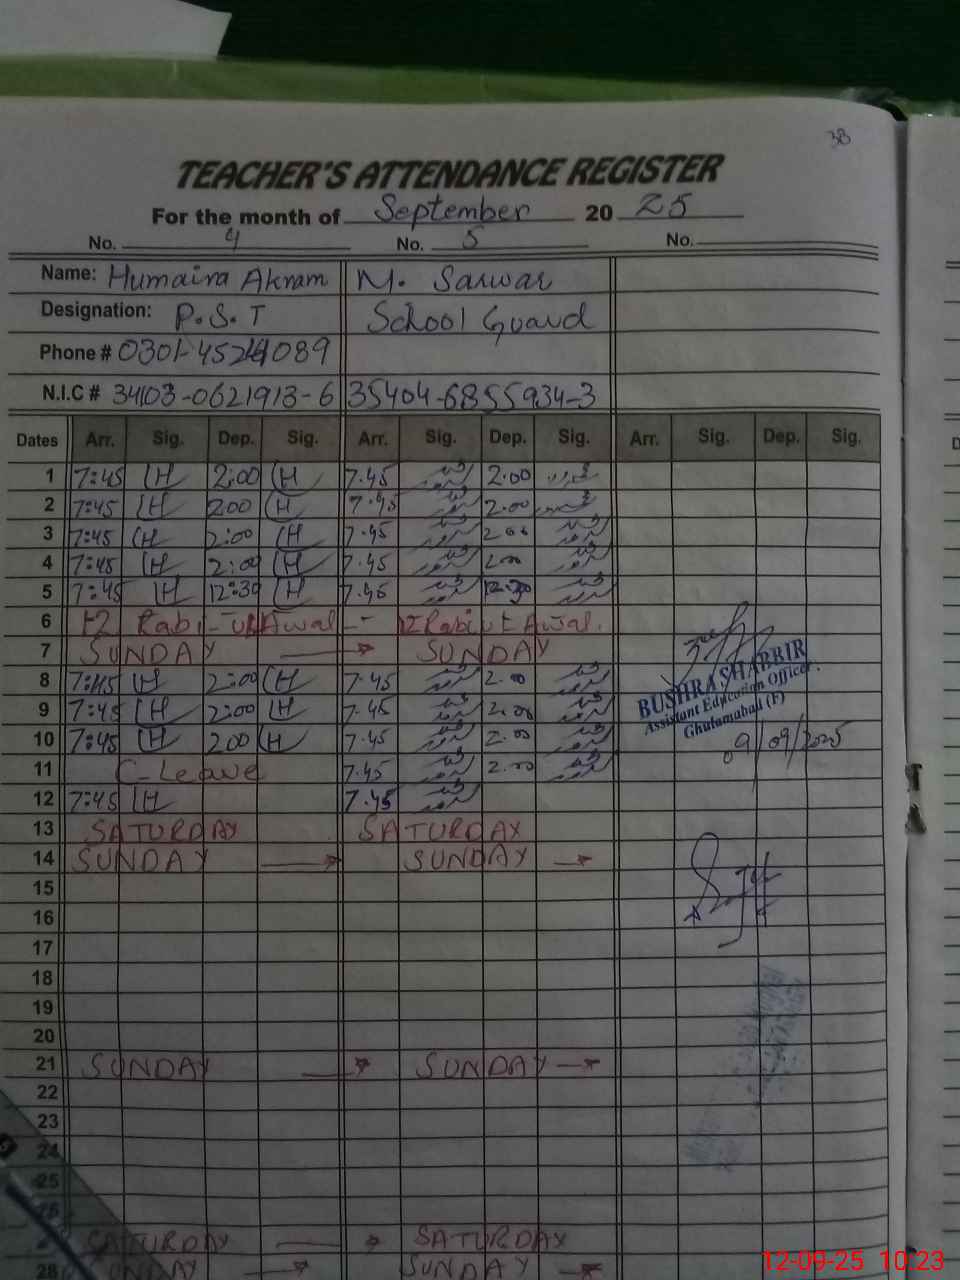 38
TEACHER'S ATTENDANCE REGISTER
For the month of September 20 25
No. 4 No. 5 No.
Name: Humaira Akram M. Sarwar
Designation: P.S.T School Guard
Phone # 0301-4524089
N.I.C # 34103-0621913-6 35404-6855934-3
Dates Arr. Sig. Dep. Sig. Arr. Sig. Dep. Sig. Arr. Sig. Dep. Sig.
1 7:45 H 2:00 H 7.45 2.00
2 7:45 H 2.00 H 7.45 2.00
3 7:45 H 2:00 H 7.45 2.00
4 7:45 H 2:00 H 7.45 2.00
5 7:45 H 12:30 H 7.45 12.30
6 12 Rabi-ul Awal - 12 Rabiul Awal.
7 SUNDAY → SUNDAY
8 7:45 H 2:00 H 7.45 2.00
BUSHRA SHABBIR
Assistant Education Officer
Ghulamabad (F)
9 7:45 H 2:00 H 7.45 2.00
10 7:45 H 2.00 H 7.45 2.00
09/09/2025
11 C-Leave 7.45 2.00
12 7:45 H 7.45
13 SATURDAY SATURDAY
14 SUNDAY → SUNDAY →
15
16
17
18
19
20
21 SUNDAY → SUNDAY →
22
23
24
25
SATURDAY → SATURDAY
28 SUNDAY → SUNDAY →
12-09-25 10:23